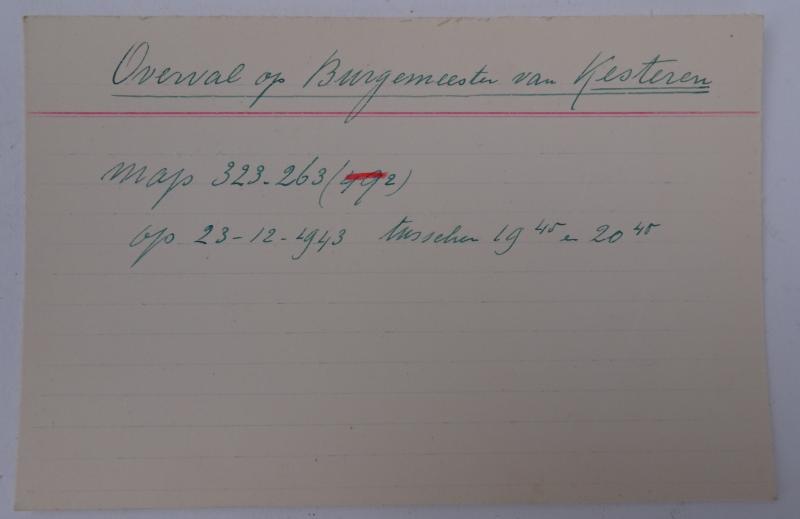 Overval op Burgemeester van Kesteren
Map 323-263 (492)
op 23-12-1943 tusschen 19 45 en 20 45